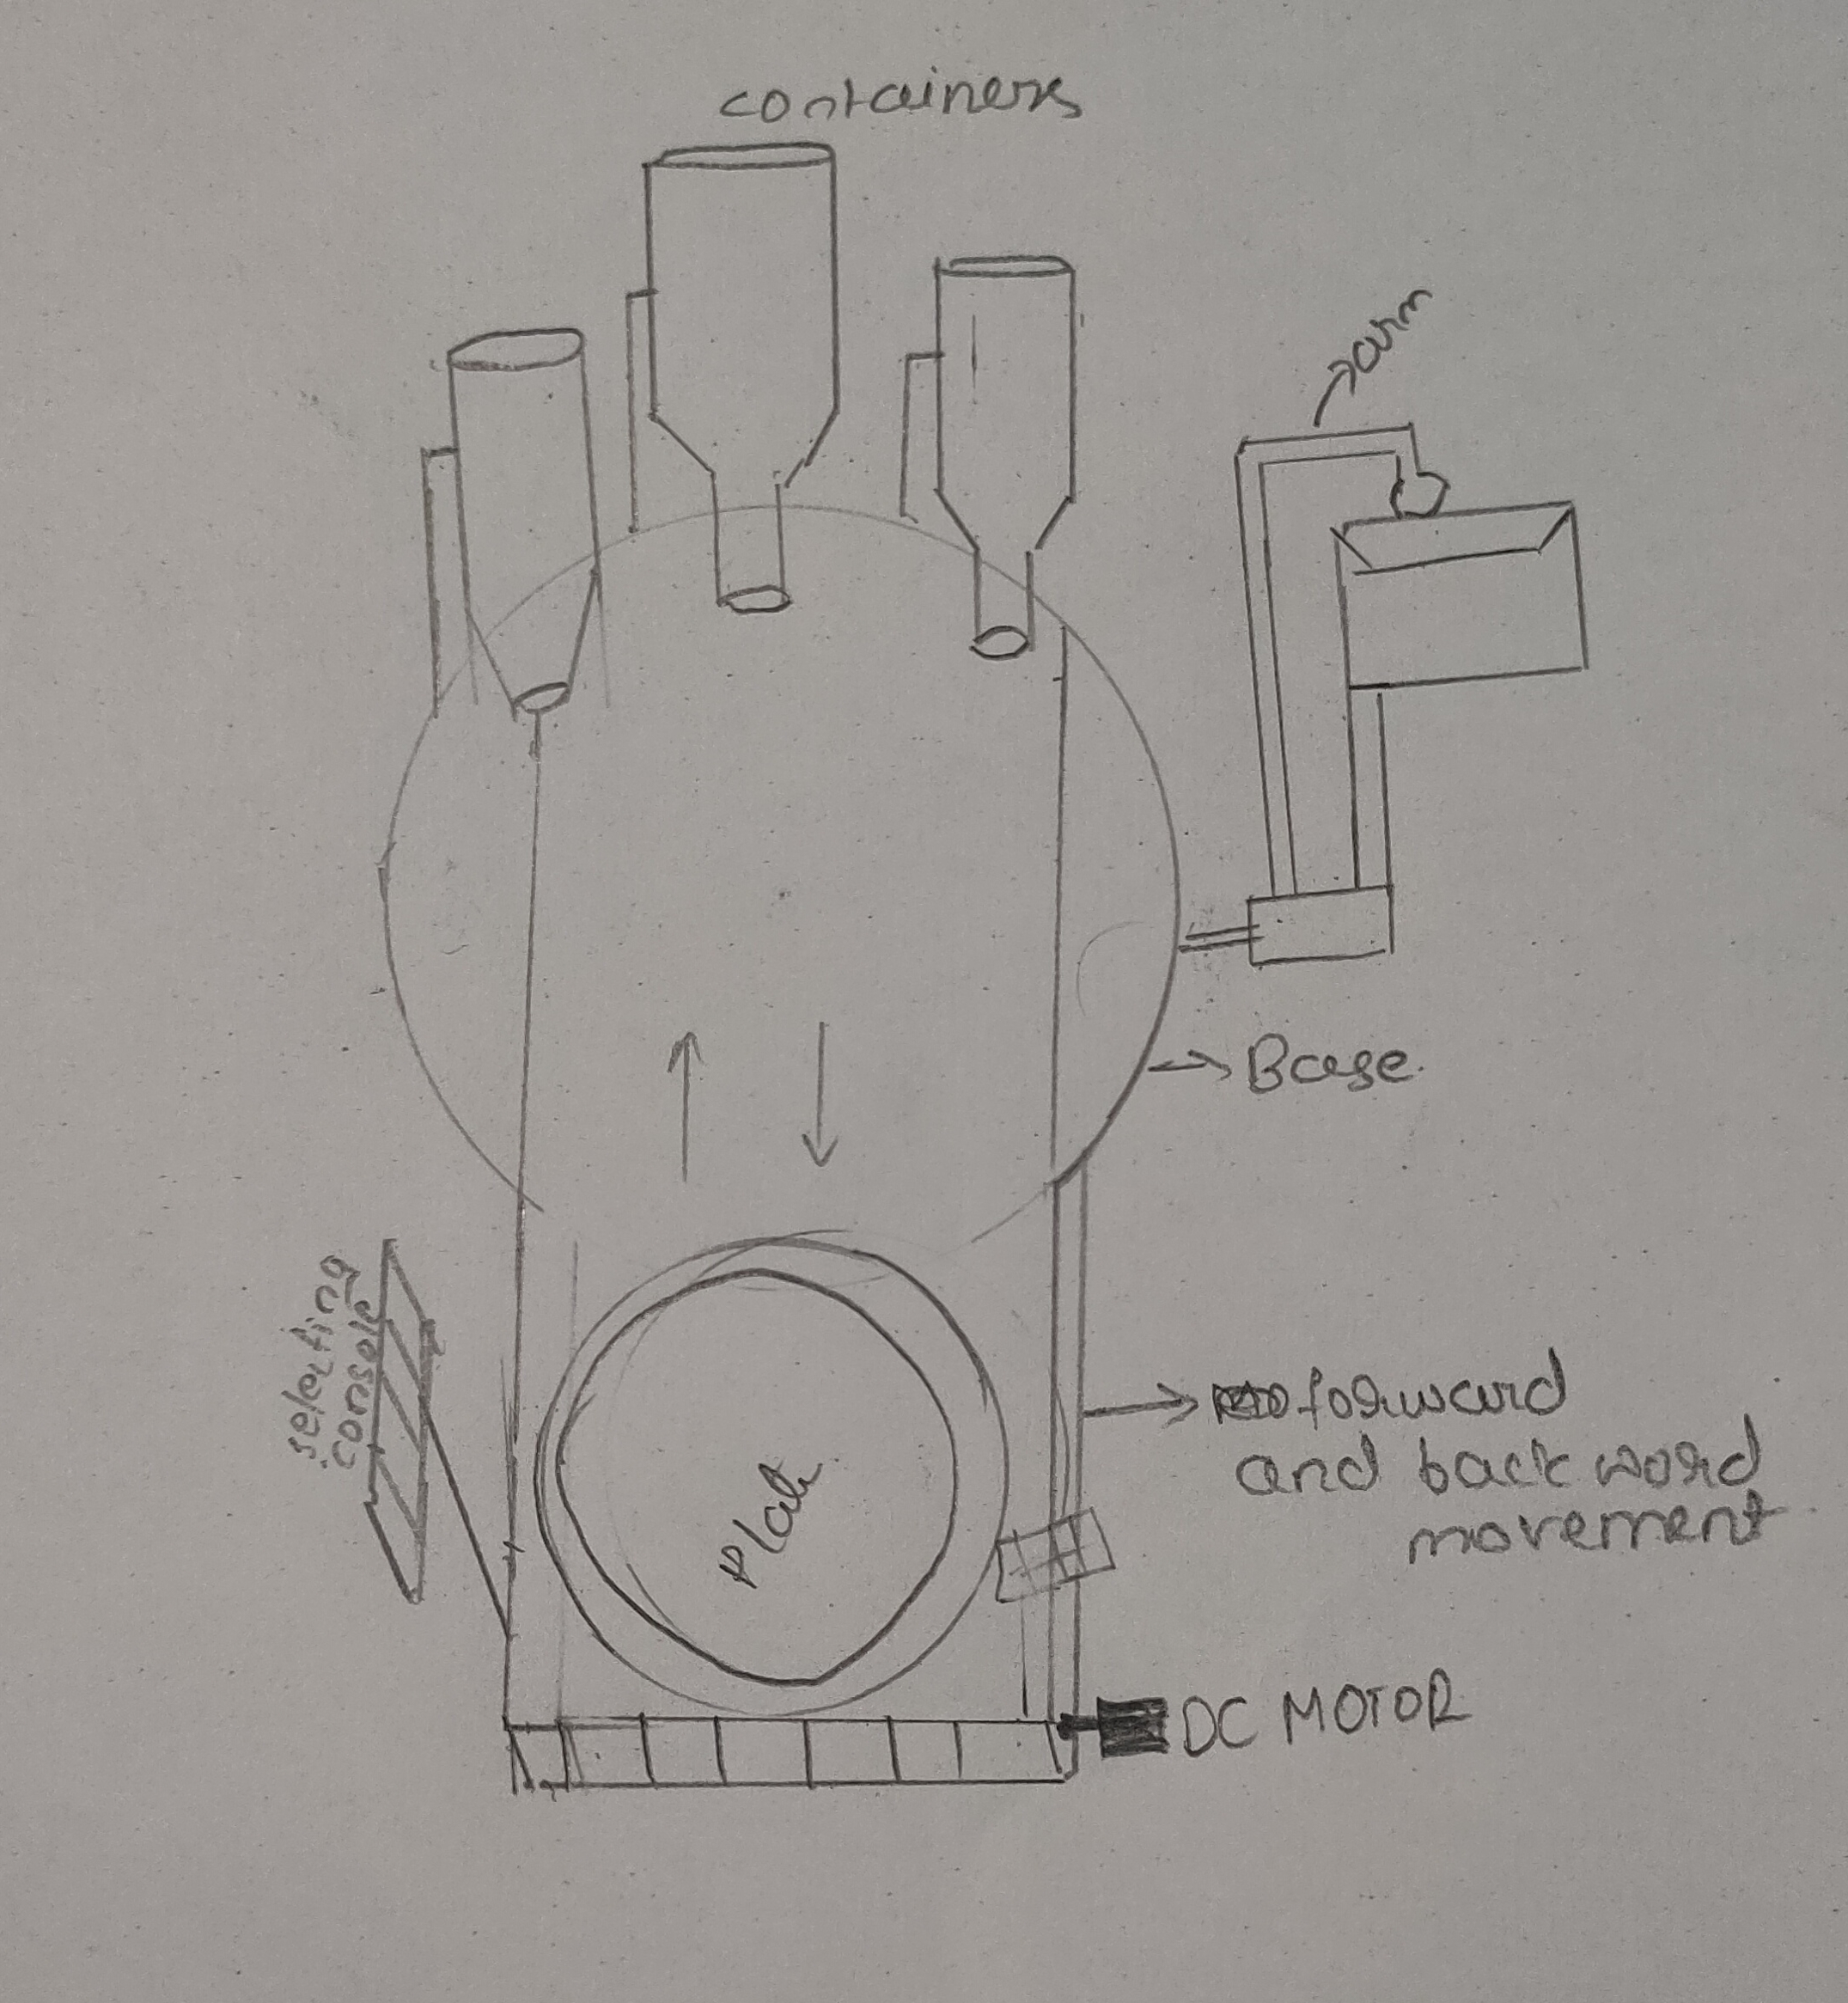 containers
arm
Base
selecting
console
forward
and back word
movement
Plate
DC MOTOR